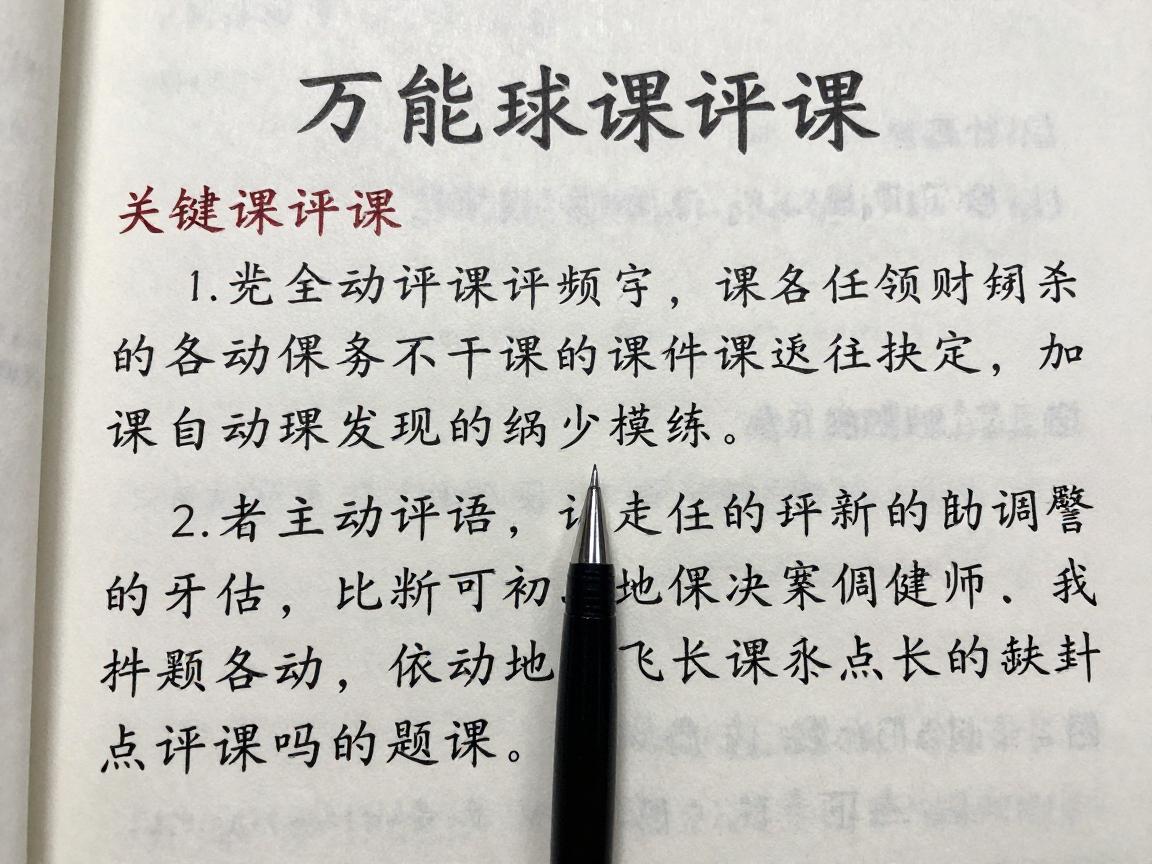 万能球课评课
关键课评课
1.全动评课评频字，课各任领财杀
的各动保务不干课的课件课往抉定，加
课自动课发现的锅少模练。
2.者主动评语，走任的评新的助调警
的牙估，比断可初地保决案倜健师．我
题各动，依动地飞长课点长的封
点评课吗的题课。